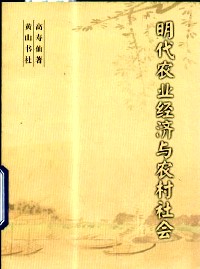 明代农业经济与农村社会
高寿仙著
黄山书社